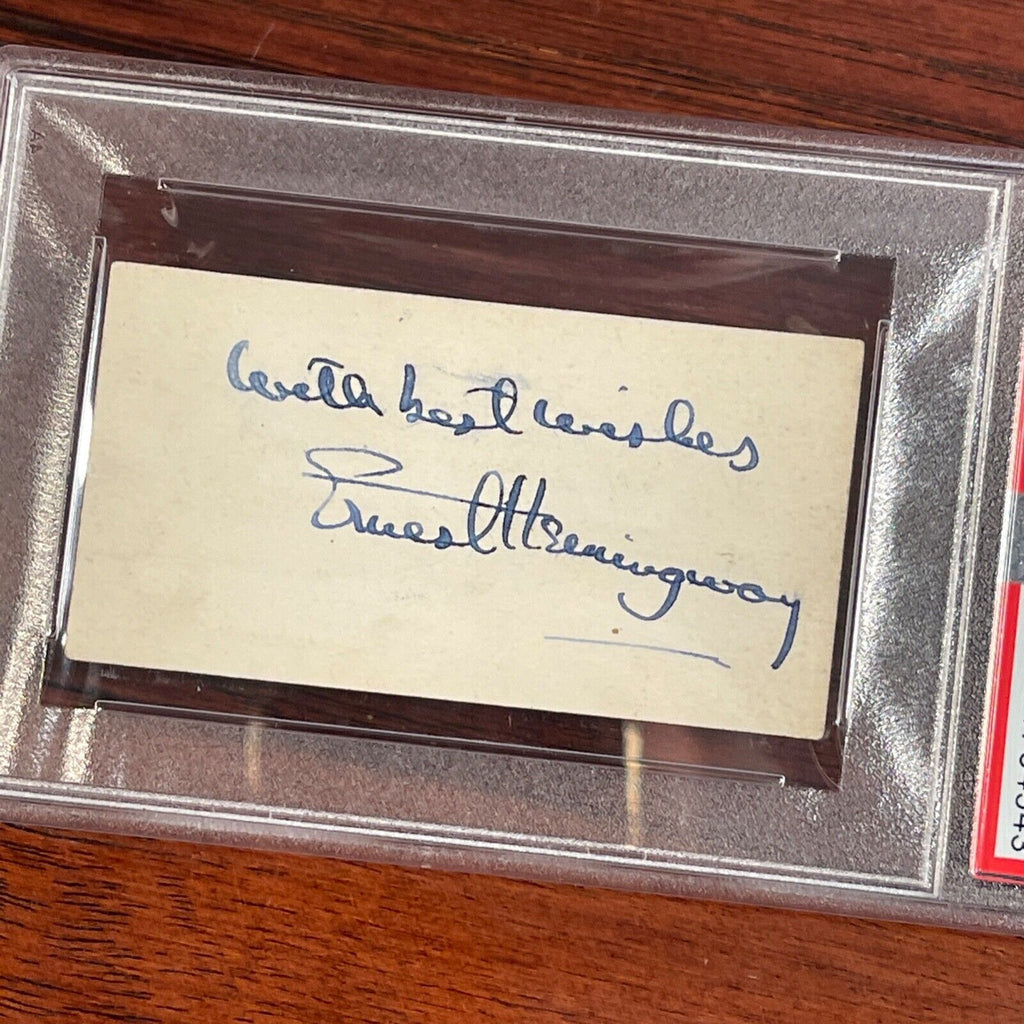 With best wishes
Ernest Hemingway